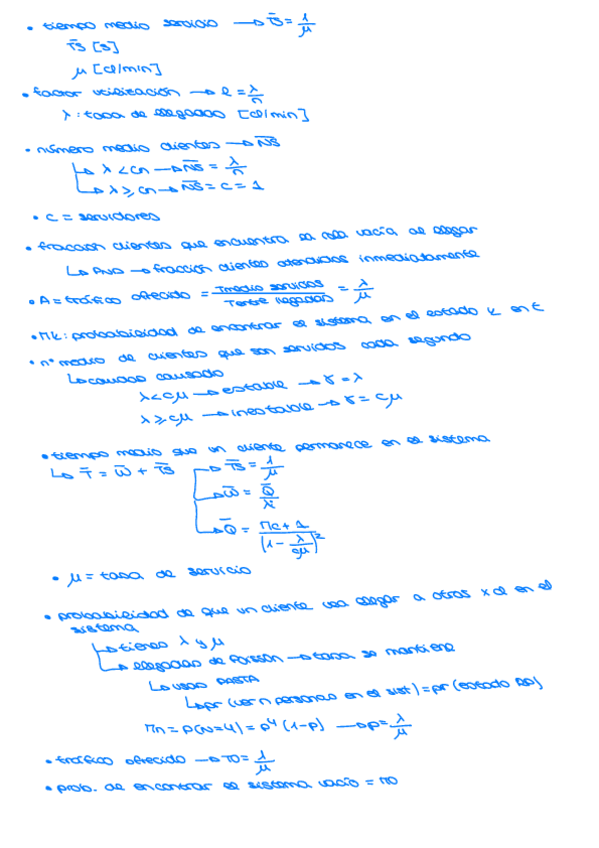 • tiempo medio servicio → T̄S = 1/μ
T̄S [s]
μ [cl/min]
• factor utilización → ρ = λ/n
λ: tasa de llegadas [cl/min]
• número medio clientes → N̄S
↳ λ < cn → N̄S = λ/n
↳ λ ⩾ cn → N̄S = C = 1
• C = servidores
• fracción clientes que encuentra la cola vacía al llegar
↳ → fracción clientes atendidos inmediatamente
• A = tráfico ofrecido = Tmedio servicios / Tentre llegadas = λ/μ
• Πk: probabilidad de encontrar el sistema en el estado k en t
• nº medio de clientes que son servidos cada segundo
↳ causado
λ < cμ → estable → γ = λ
λ ⩾ cμ → inestable → γ = cμ
• tiempo medio que un cliente permanece en el sistema
↳ T̄ = W̄ + T̄S → T̄S = 1/μ
→ W̄ = Q̄/λ
→ Q̄ = Πc+1 / (1 - λ/cμ)²
• μ = tasa de servicio
• probabilidad de que un cliente vea llegar a otros x cl en el
sistema
↳ tienes λ y μ
↳ llegadas de Poisson → tasa se mantiene
↳ usas PASTA
↳ pr (ver n personas en el sist) = pr (estado)
Πn = P(N=4) = ρ⁴ (1-ρ) → ρ = λ/μ
• tráfico ofrecido → TO = λ/μ
• prob. de encontrar el sistema vacío = Π0